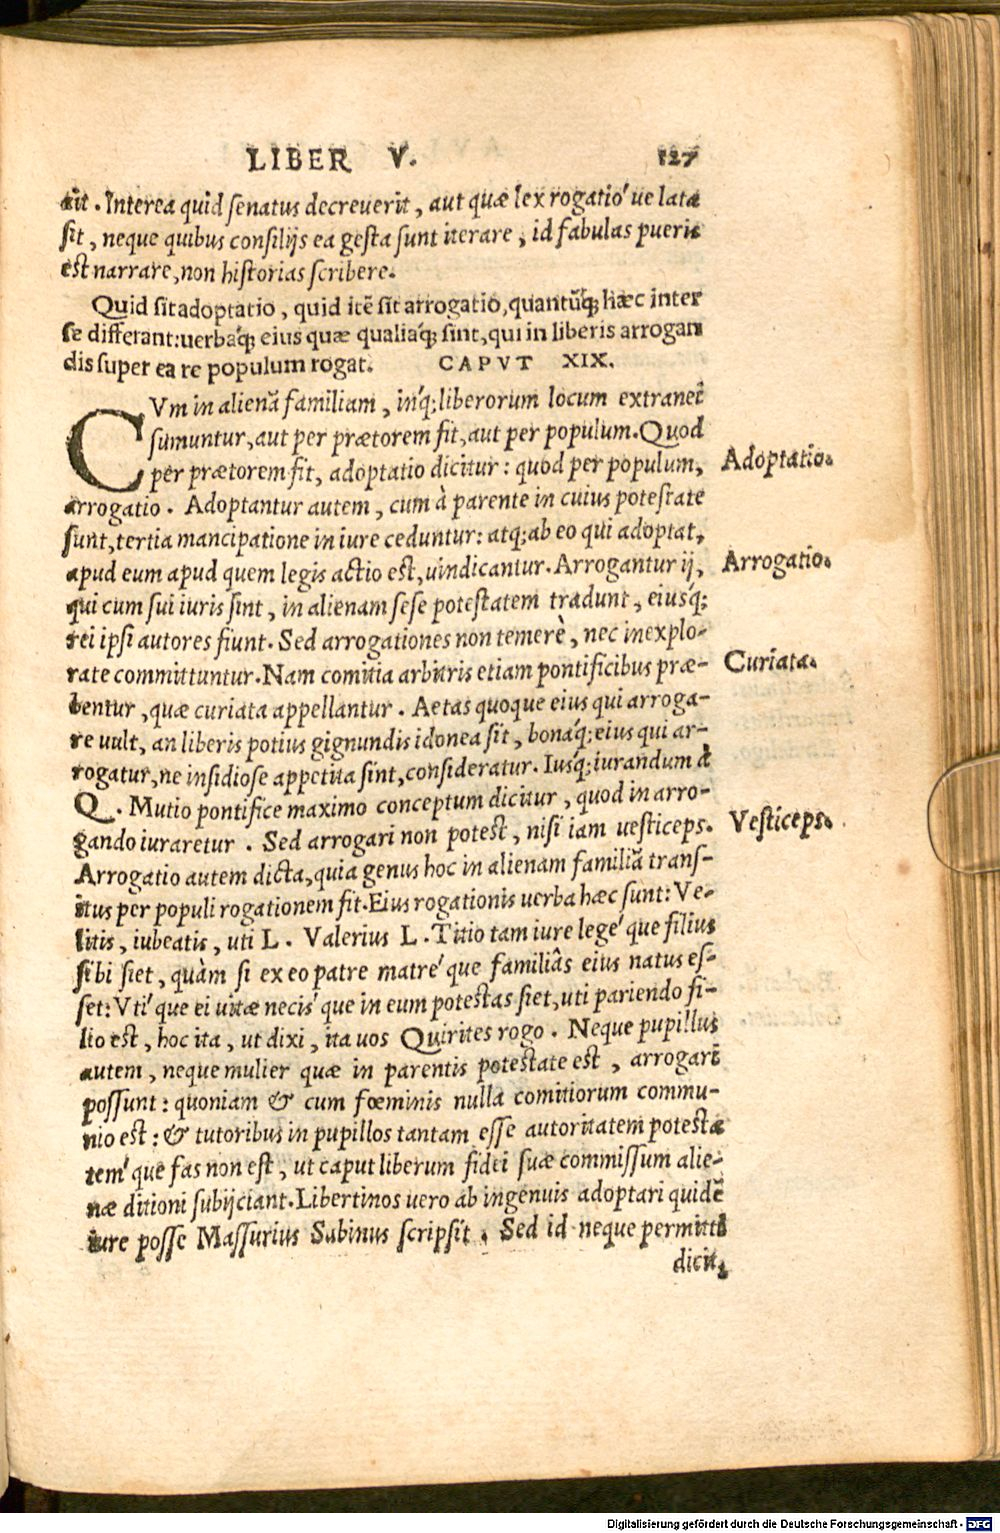 LIBER V. 127
ait. Interea quid senatus decreuerit, aut quæ lex rogatio´ue lata
sit, neque quibus consilijs ea gesta sunt iterare, id fabulas pueris
est narrare, non historias scribere.
Quid sit adoptatio, quid itē sit arrogatio, quantūq; hæc inter
se differant: uerbáq; eius quæ qualiáq; sint, qui in liberis arrogan
dis super ea re populum rogat. CAPVT XIX.
CVm in alienā familiam, inq́; liberorum locum extranei
sumuntur, aut per prætorem fit, aut per populum. Quod
per prætorem fit, adoptatio dicitur: quod per populum,
Adoptatio.
arrogatio. Adoptantur autem, cum à parente in cuius potestate
sunt, tertia mancipatione in iure ceduntur: atq; ab eo qui adoptat,
apud eum apud quem legis actio est, uindicantur. Arrogantur ij,
Arrogatio.
qui cum sui iuris sint, in alienam sese potestatem tradunt, eiusq́;
rei ipsi autores fiunt. Sed arrogationes non temerè, nec inexplo-
rate committuntur. Nam comitia arbitris etiam pontificibus præ-
Curiata.
bentur, quæ curiata appellantur. Aetas quoque eius qui arroga-
re uult, an liberis potius gignundis idonea sit, bonaq́; eius qui ar-
rogatur, ne insidiose appetita sint, consideratur. Iusq́; iurandum à
Q. Mutio pontifice maximo conceptum dicitur, quod in arro-
gando iuraretur. Sed arrogari non potest, nisi iam uesticeps.
Vesticeps.
Arrogatio autem dicta, quia genus hoc in alienam familiā trans-
itus per populi rogationem fit. Eius rogationis uerba hæc sunt: Ve-
litis, iubeatis, uti L. Valerius L. Titio tam iure legé que filius
sibi siet, quàm si ex eo patre matré que familiâs eius natus es-
set: Vtí que ei uitæ necis´ que in eum potestas siet, uti pariendo fi-
lio est, hoc ita, ut dixi, ita uos Quirites rogo. Neque pupillus
autem, neque mulier quæ in parentis potestate est, arrogari
possunt: quoniam & cum fœminis nulla comitiorum commu-
nio est: & tutoribus in pupillos tantam esse autoritatem potesta
tem´ que fas non est, ut caput liberum fidei suæ commissum alie-
næ ditioni subijciant. Libertinos uero ab ingenuis adoptari quidē
iure posse Massurius Sabinus scripsit. Sed id neque permitti
dicit,
Digitalisierung gefördert durch die Deutsche Forschungsgemeinschaft - DFG